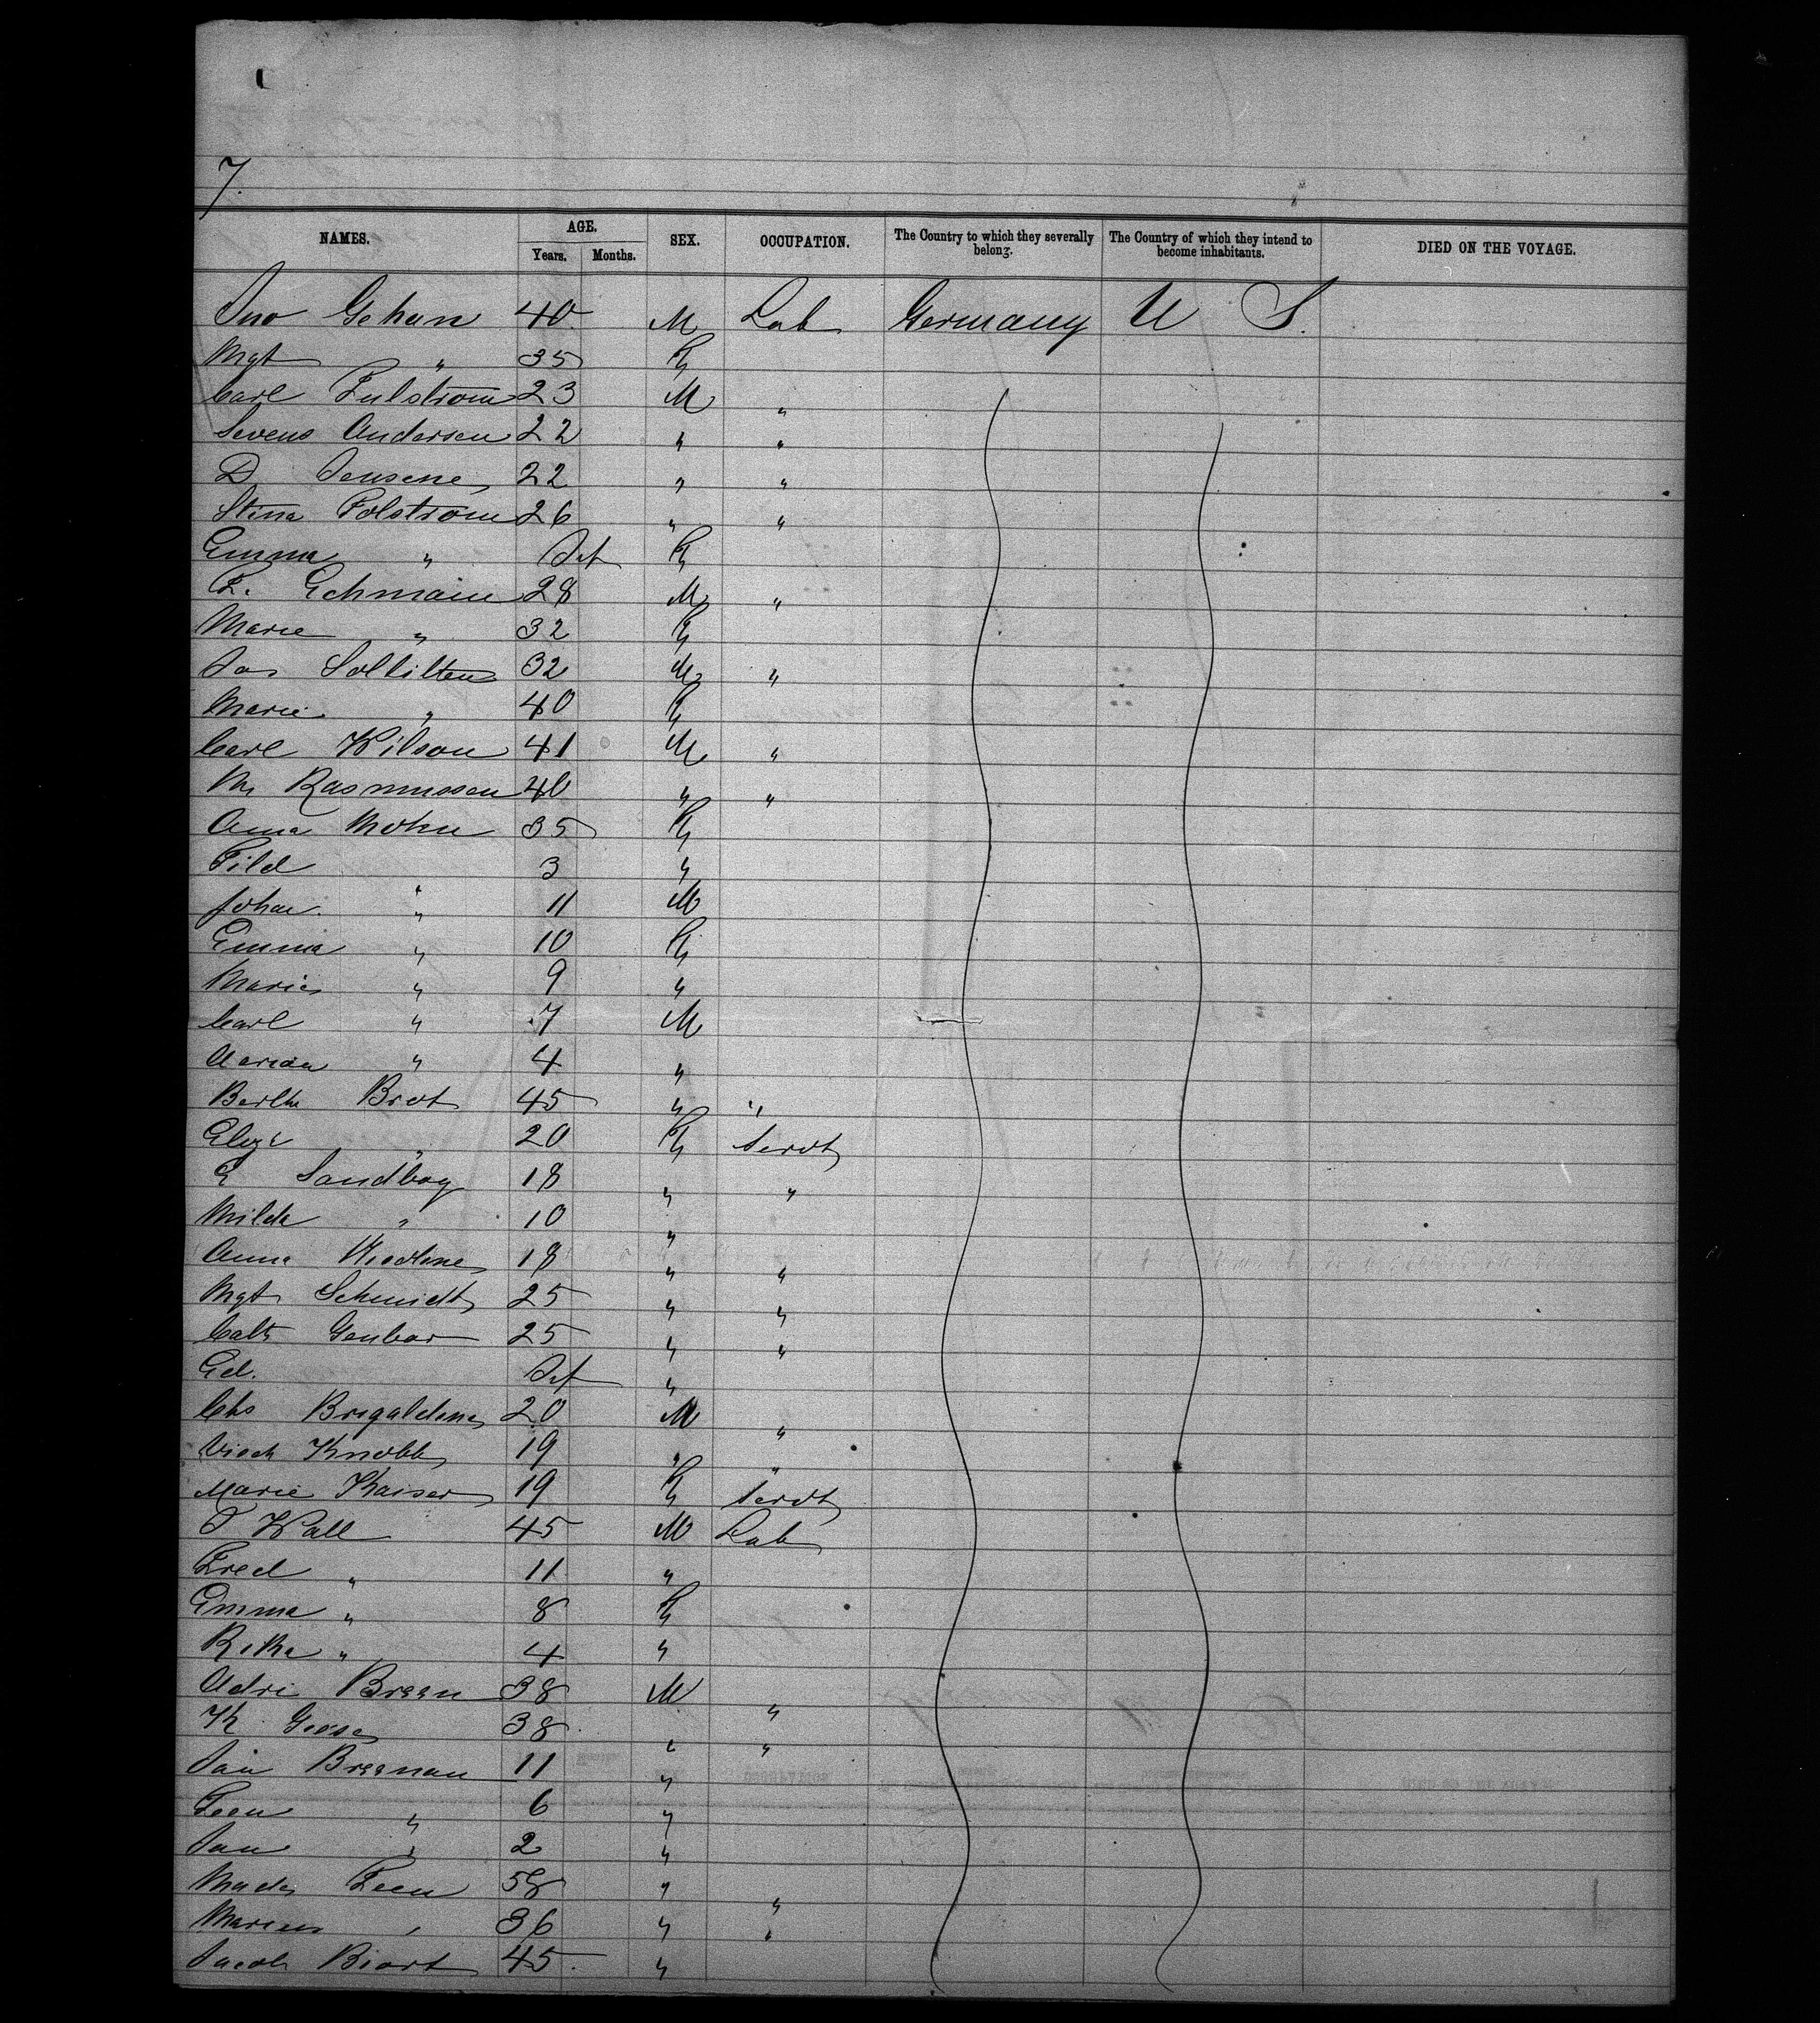 7.
NAMES. AGE. Years. Months. SEX. OCCUPATION. The Country to which they severally belong. The Country of which they intend to become inhabitants. DIED ON THE VOYAGE.
Jno Gehan 40 M Lab Germany U S.
Mgt " 35 F
Carl Fulstrom 23 M "
Sevens Andersen 22 " "
D Jensene 22 " "
Stina Folstrom 26 " "
Emma " Inf F
F. Gehmain 28 M "
Marie " 32 F
Jas Soltilten 32 M "
Marie " 40 F
Carl Wilson 41 M "
M Rasmussen 40 " "
Anna Mohn 35 F
Fild " 3 "
Johan " 11 M
Emma " 10 F
Maria " 9 "
Carl " 7 M
" 4 "
Bertha Brot 45 " "
Eliza " 20 F Servt
E Sandbag 18 " "
Milda " 10 "
Anna 18 " "
Mgt Schmidt 25 " "
Cath Genbar 25 " "
Ed. Inf "
Chs Brigaldena 20 M "
Knobb 19 " "
Marie Kaiser 19 F Servt
J Wall 45 M Lab
Fred " 11 "
Emma " 8 F
" 4 "
Adri Braan 38 M "
K Goose 38 " "
Jan Braanan 11 "
Leen " 6 "
Jan " 2 "
Leen 58 " "
Marien " 36 " "
Jacob Biart 45 "